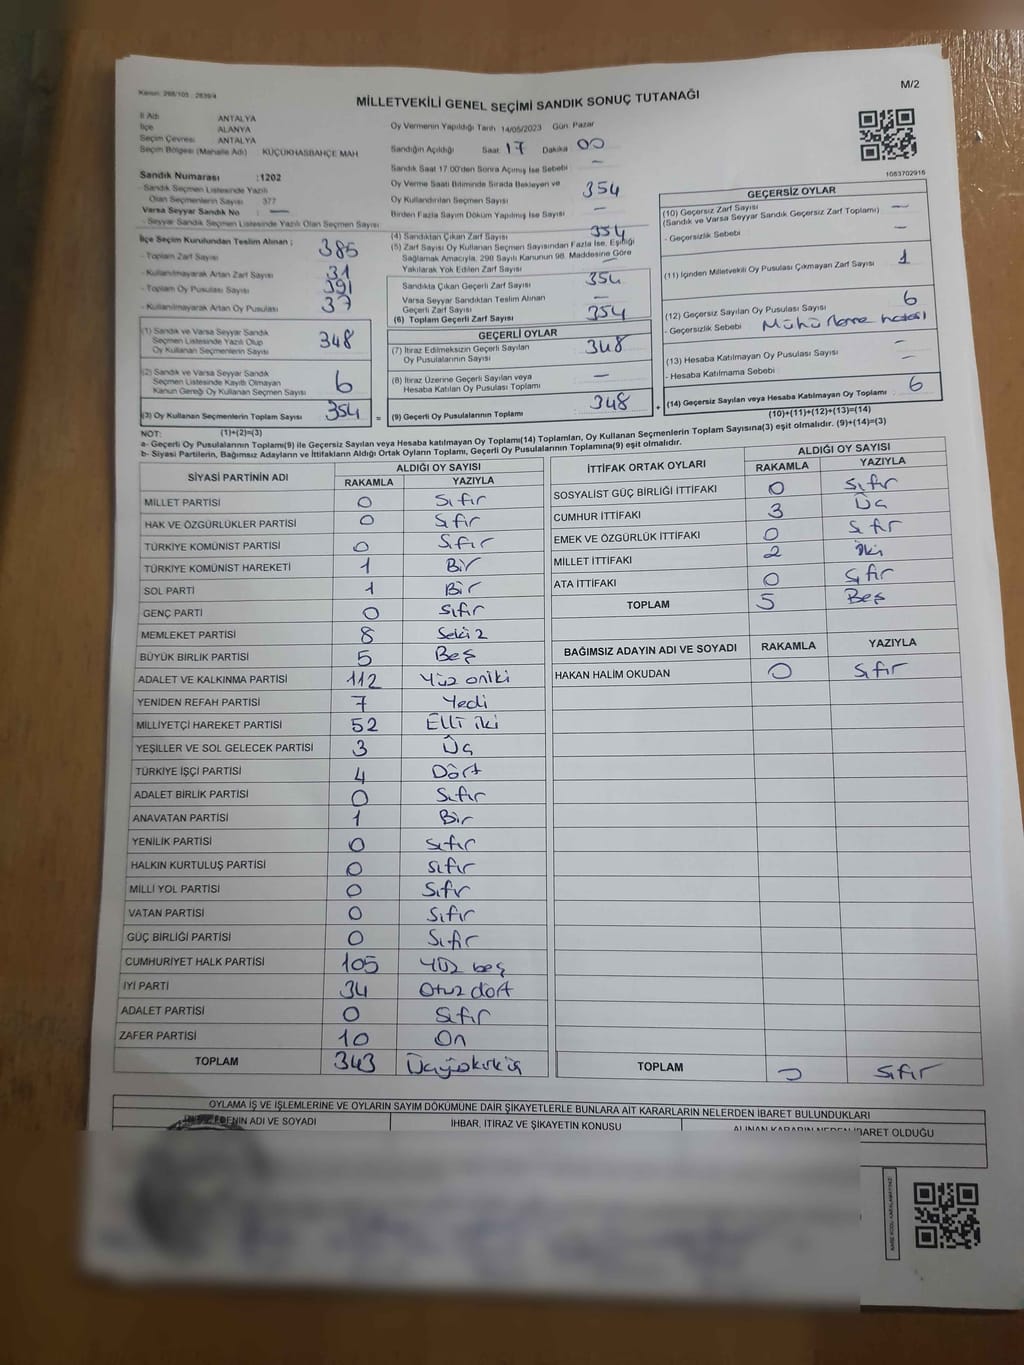 Kanun: 298/105 : 2839/4
M/2
MİLLETVEKİLİ GENEL SEÇİMİ SANDIK SONUÇ TUTANAĞI
İl Adı ANTALYA
İlçe ALANYA
Seçim Çevresi ANTALYA
Seçim Bölgesi (Mahalle Adı) KÜÇÜKHASBAHÇE MAH
Sandık Numarası :1202
- Sandık Seçmen Listesinde Yazılı
Olan Seçmenlerin Sayısı 377
Varsa Seyyar Sandık No : —
- Seyyar Sandık Seçmen Listesinde Yazılı Olan Seçmen Sayısı
Oy Vermenin Yapıldığı Tarih 14/05/2023 Gün Pazar
Sandığın Açıldığı Saat 17 Dakika 00
Sandık Saat 17 00'den Sonra Açımış İse Sebebi —
Oy Verme Saati Bitiminde Sırada Bekleyen ve
Oy Kullandırılan Seçmen Sayısı 354
Birden Fazla Sayım Döküm Yapılmış İse Sayısı —
1083702916
İlçe Seçim Kurulundan Teslim Alınan ;
- Toplam Zarf Sayısı 385
- Kullanılmayarak Artan Zarf Sayısı 31
- Toplam Oy Pusulası Sayısı 391
- Kullanılmayarak Artan Oy Pusulası 37
(1) Sandık ve Varsa Seyyar Sandık
Seçmen Listesinde Yazılı Olup
Oy Kullanan Seçmenlerin Sayısı 348
(2) Sandık ve Varsa Seyyar Sandık
Seçmen Listesinde Kayıtlı Olmayan
Kanun Gereği Oy Kullanan Seçmen Sayısı 6
(3) Oy Kullanan Seçmenlerin Toplam Sayısı 354 =
(1)+(2)=(3)
(4) Sandıktan Çıkan Zarf Sayısı 354
(5) Zarf Sayısı Oy Kullanan Seçmen Sayısından Fazla İse, Eşitliği
Sağlamak Amacıyla, 298 Sayılı Kanunun 98. Maddesine Göre
Yakılarak Yok Edilen Zarf Sayısı
Sandıkta Çıkan Geçerli Zarf Sayısı 354
Varsa Seyyar Sandıktan Teslim Alınan
Geçerli Zarf Sayısı —
(6) Toplam Geçerli Zarf Sayısı 354
GEÇERLİ OYLAR
(7) İtiraz Edilmeksizin Geçerli Sayılan
Oy Pusulalarının Sayısı 348
(8) İtiraz Üzerine Geçerli Sayılan veya
Hesaba Katılan Oy Pusulası Toplamı —
(9) Geçerli Oy Pusulalarının Toplamı 348 +
GEÇERSİZ OYLAR
(10) Geçersiz Zarf Sayısı
(Sandık ve Varsa Seyyar Sandık Geçersiz Zarf Toplamı) —
- Geçersizlik Sebebi
(11) İçinden Milletvekili Oy Pusulası Çıkmayan Zarf Sayısı 1
(12) Geçersiz Sayılan Oy Pusulası Sayısı 6
- Geçersizlik Sebebi Mühürleme hatası
(13) Hesaba Katılmayan Oy Pusulası Sayısı —
- Hesaba Katılmama Sebebi —
(14) Geçersiz Sayılan veya Hesaba Katılmayan Oy Toplamı 6
(10)+(11)+(12)+(13)=(14)
NOT:
a- Geçerli Oy Pusulalarının Toplamı(9) ile Geçersiz Sayılan veya Hesaba katılmayan Oy Toplamı(14) Toplamları, Oy Kullanan Seçmenlerin Toplam Sayısına(3) eşit olmalıdır. (9)+(14)=(3)
b- Siyasi Partilerin, Bağımsız Adayların ve İttifakların Aldığı Ortak Oyların Toplamı, Geçerli Oy Pusulalarının Toplamına(9) eşit olmalıdır.
SİYASİ PARTİNİN ADI ALDIĞI OY SAYISI
RAKAMLA YAZIYLA
MİLLET PARTİSİ 0 Sıfır
HAK VE ÖZGÜRLÜKLER PARTİSİ 0 Sıfır
TÜRKİYE KOMÜNİST PARTİSİ 0 Sıfır
TÜRKİYE KOMÜNİST HAREKETİ 1 Bir
SOL PARTİ 1 Bir
GENÇ PARTİ 0 Sıfır
MEMLEKET PARTİSİ 8 Sekiz
BÜYÜK BİRLİK PARTİSİ 5 Beş
ADALET VE KALKINMA PARTİSİ 112 Yüz oniki
YENİDEN REFAH PARTİSİ 7 Yedi
MİLLİYETÇİ HAREKET PARTİSİ 52 Elli iki
YEŞİLLER VE SOL GELECEK PARTİSİ 3 Üç
TÜRKİYE İŞÇİ PARTİSİ 4 Dört
ADALET BİRLİK PARTİSİ 0 Sıfır
ANAVATAN PARTİSİ 1 Bir
YENİLİK PARTİSİ 0 Sıfır
HALKIN KURTULUŞ PARTİSİ 0 Sıfır
MİLLİ YOL PARTİSİ 0 Sıfır
VATAN PARTİSİ 0 Sıfır
GÜÇ BİRLİĞİ PARTİSİ 0 Sıfır
CUMHURİYET HALK PARTİSİ 105 Yüz beş
İYİ PARTİ 34 Otuz dört
ADALET PARTİSİ 0 Sıfır
ZAFER PARTİSİ 10 On
TOPLAM 343 Üçyüzkırküç
İTTİFAK ORTAK OYLARI ALDIĞI OY SAYISI
RAKAMLA YAZIYLA
SOSYALİST GÜÇ BİRLİĞİ İTTİFAKI 0 Sıfır
CUMHUR İTTİFAKI 3 Üç
EMEK VE ÖZGÜRLÜK İTTİFAKI 0 Sıfır
MİLLET İTTİFAKI 2 İki
ATA İTTİFAKI 0 Sıfır
TOPLAM 5 Beş
BAĞIMSIZ ADAYIN ADI VE SOYADI RAKAMLA YAZIYLA
HAKAN HALİM OKUDAN 0 Sıfır
TOPLAM 0 Sıfır
OYLAMA İŞ VE İŞLEMLERİNE VE OYLARIN SAYIM DÖKÜMÜNE DAİR ŞİKAYETLERLE BUNLARA AİT KARARLARIN NELERDEN İBARET BULUNDUKLARI
ADI VE SOYADI İHBAR, İTİRAZ VE ŞİKAYETİN KONUSU ALINAN KARARIN NEDEN İBARET OLDUĞU